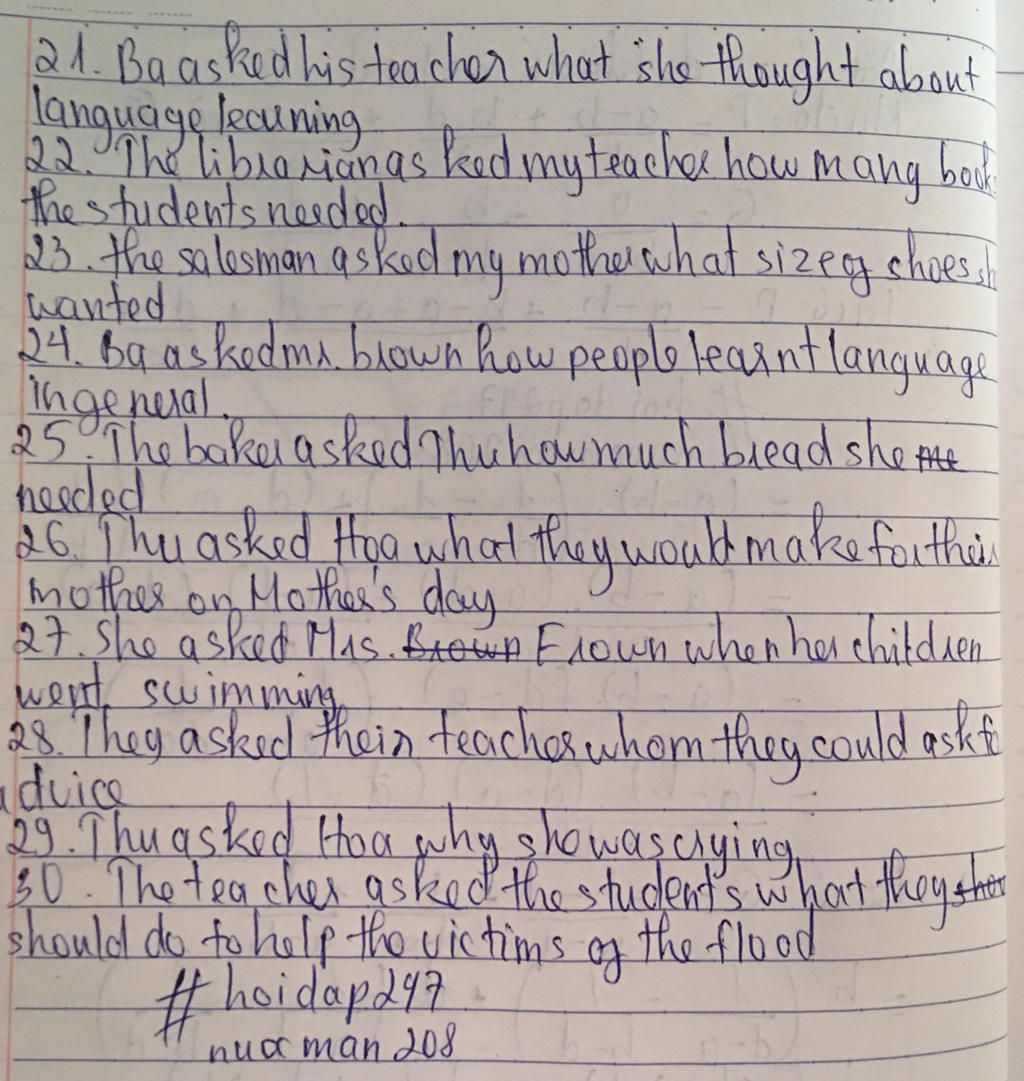 21. Ba asked his teacher what she thought about
language learning
22. The librarian asked my teacher how many book
the students needed.
23. the salesman asked my mother what size of shoes sh
wanted
24. Ba asked mr. brown how people learnt language
in general.
25. The baker asked Thu how much bread she me
needed
26. Thu asked Hoa what they would make for their
mother on Mother's day
27. She asked Mrs. Brown Frown when her children
went swimming
28. They asked their teacher whom they could ask fo
advice
29. Thu asked Hoa why she was crying
30. The teacher asked the students what they
should do to help the victims of the flood
# hoidap247
man 208